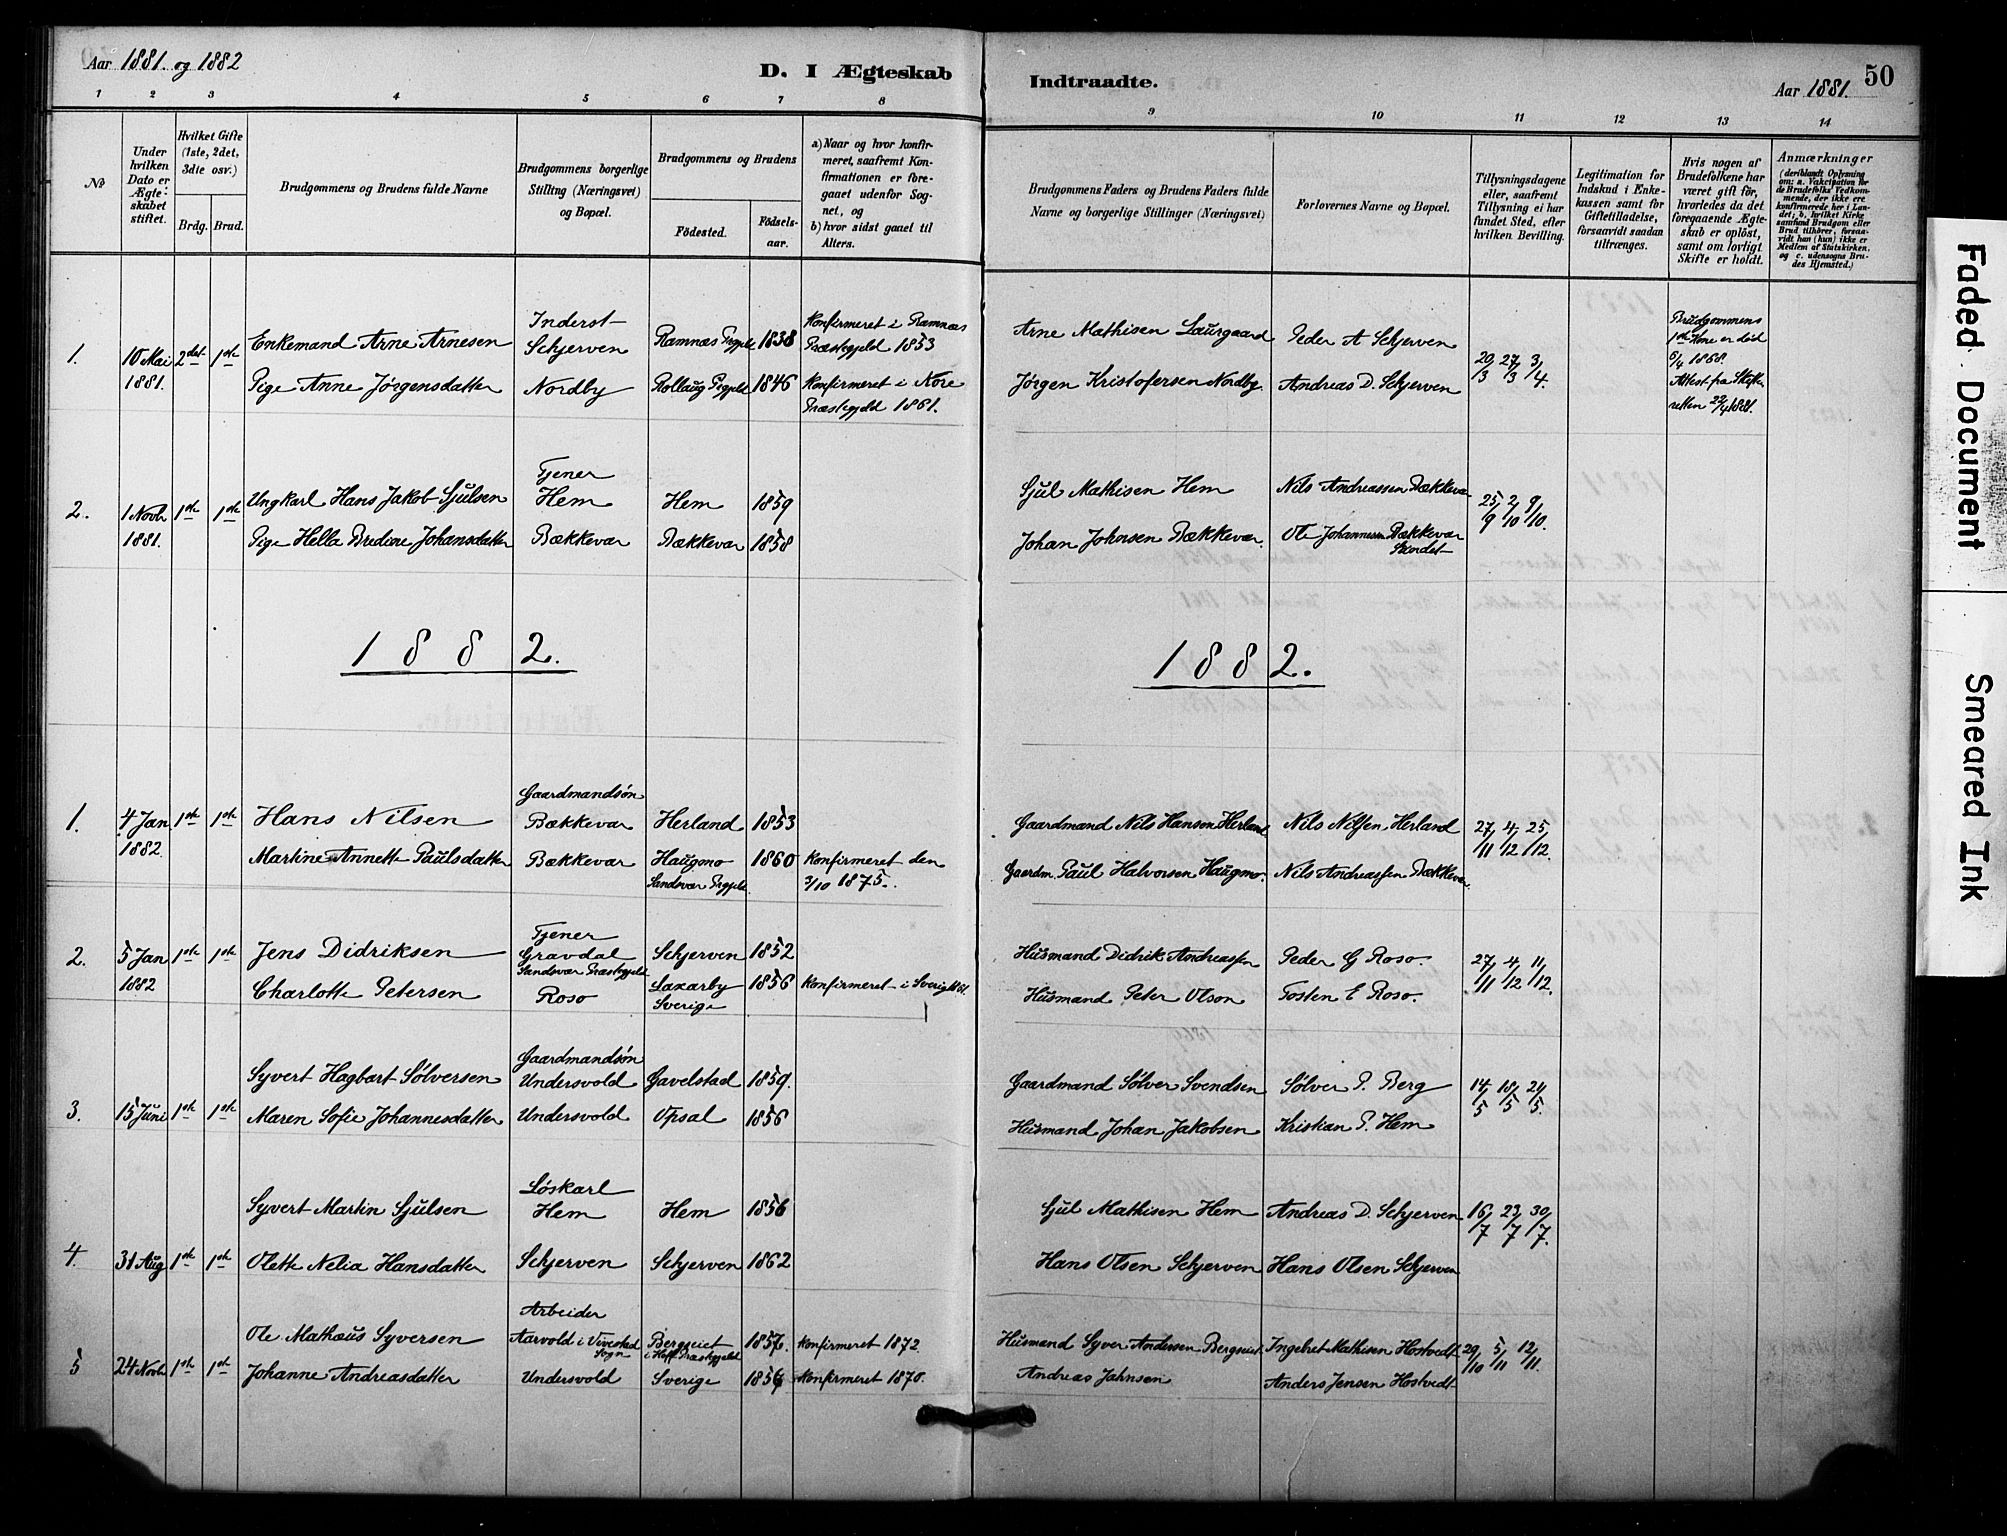 Aar 1881. og 1882
D. I Ægteskab
Indtraadte.
50
Aar 1881.
1 2 3 4 5 6 7 8
9 10 11 12 13 14
No
Under hvilken Dato er Ægteskabet stiftet.
Hvilket Gifte (1ste, 2det, 3die osv.)
Brdg. Brud.
Brudgommens og Brudens fulde Navne
Brudgommens borgerlige Stilling (Næringsvei) og Bopæl.
Brudgommens og Brudens
Fødested.
Fødselsaar.
a) Naar og hvor konfirmeret, saafremt Konfirmationen er foregaaet udenfor Sognet, og
b) hvor sidst gaaet til Alters.
Brudgommens Faders og Brudens Faders fulde Navne og borgerlige Stillinger (Næringsvei)
Forlovernes Navne og Bopæl.
Tillysningsdagene eller, saafremt Tillysning ei har fundet Sted, efter hvilken Bevilling.
Legitimation for Indskud i Enkekassen samt for Giftetilladelse, forsaavidt saadan tiltrænges.
Hvis nogen af Brudefolkene har været gift før, hvorledes da det foregaaende Ægteskab er opløst, samt om lovligt Skifte er holdt.
Anmærkninger
(deriblandt Oplysning om: a. Vakcination for de Brudefolks Vedkommende, der ikke ere konfirmerede her i Landet; b. hvilket Kirkesamfund Brudgom eller Brud tilhører, forsaavidt han (hun) ikke er Medlem af Statskirken, og c. udensogns Brudes Hjemsted.)
1. 10 Mai 1881. 2det 1ste
Enkemand Arne Arnesen Inderst Schjerven Ramnæs Prgjeld 1838 Konfirmeret i Ramnæs Præstegjeld 1853
Arne Mathisen Laursgaard Peder A Schjerven 20/3 27/3 3/4.
Brudgommens 1ste Kone er død 5/4 1868. Attest fra Skifteretten 22/4 1881.
Pige Anne Jørgensdatter Nordby Rollaug Prgjeld 1846 Konfirmeret i Nore Præstegjeld 1861.
Jørgen Kristofersen Nordby. Andreas D. Schjerven
2. 1 Novb 1881. 1ste 1ste
Ungkarl Hans Jakob Sjulsen Tjener Hem Hem 1859
Sjul Mathisen Hem Nils Andreassen Bækkevar 25/9 2/10 9/10.
Pige Hella Bredine Johansdatter Bækkevar Bækkevar 1858
Johan Johnsen Bækkevar. Ole Johannesen Bækkevar
1882.
1882.
1. 4 Jan 1882. 1ste 1ste
Hans Nilsen Gaardmandsøn Bækkevar Herland 1853
Gaardmand Nils Hansen Herland Nils Nilssen Herland 27/11 4/12 25/12.
Martine Annette Paulsdatter Bækkevar Haugmo Sandsvær Prgjeld 1860 Konfirmeret den 3/10 1875.
Gaardm. Paul Halvorsen Haugmo. Nils Andreassen Bækkevar.
2. 5 Jan 1882 1ste 1ste
Jens Didriksen Tjener Gravdal Sandsvær Præstegjeld Schjerven 1852
Husmand Didrik Andreassen Peder G Roso. 27/11 4/12 11/12.
Charlotte Petersen Roso Laxarby Sverige 1856 Konfirmeret i Sverig
Husmand Peter Olson Tosten E Roso.
3. 15 Juni 1ste 1ste
Syvert Hagbart Sølversen Gaardmandsøn Undersvold Gavelstad 1859.
Gaardmand Sølver Svendsen Sølver P. Berg 14/5 18/5 21/5.
Maren Sofie Johannesdatter Undersvold Opsal 1856
Husmand Johan Jakobsen Kristian P. Hem
4. 31 Aug 1ste 1ste
Syvert Martin Sjulsen Løskarl Hem Hem 1856
Sjul Mathisen Hem Andreas D. Schjerven 16/7 23/7 30/7.
Olette Nelia Hansdatter Schjerven Schjerven 1862
Hans Olsen Schjerven Hans Olsen Schjerven
5 24 Novb 1ste 1ste
Ole Mathæus Syversen Arbeider Aarvold i Vivestad Sogn Bergseiet i Hoff Præstegjeld 1857. Konfirmeret 1872
Husmand Syver Andersen Bergseiet. Ingebret Mathisen Hostvedt 29/10 5/11 12/11.
Johanne Andreasdatter Undersvold Sverige Konfirmeret 1870.
Andreas Jahnsen Anders Jensen Hostvedt
Faded Document
Smeared Ink